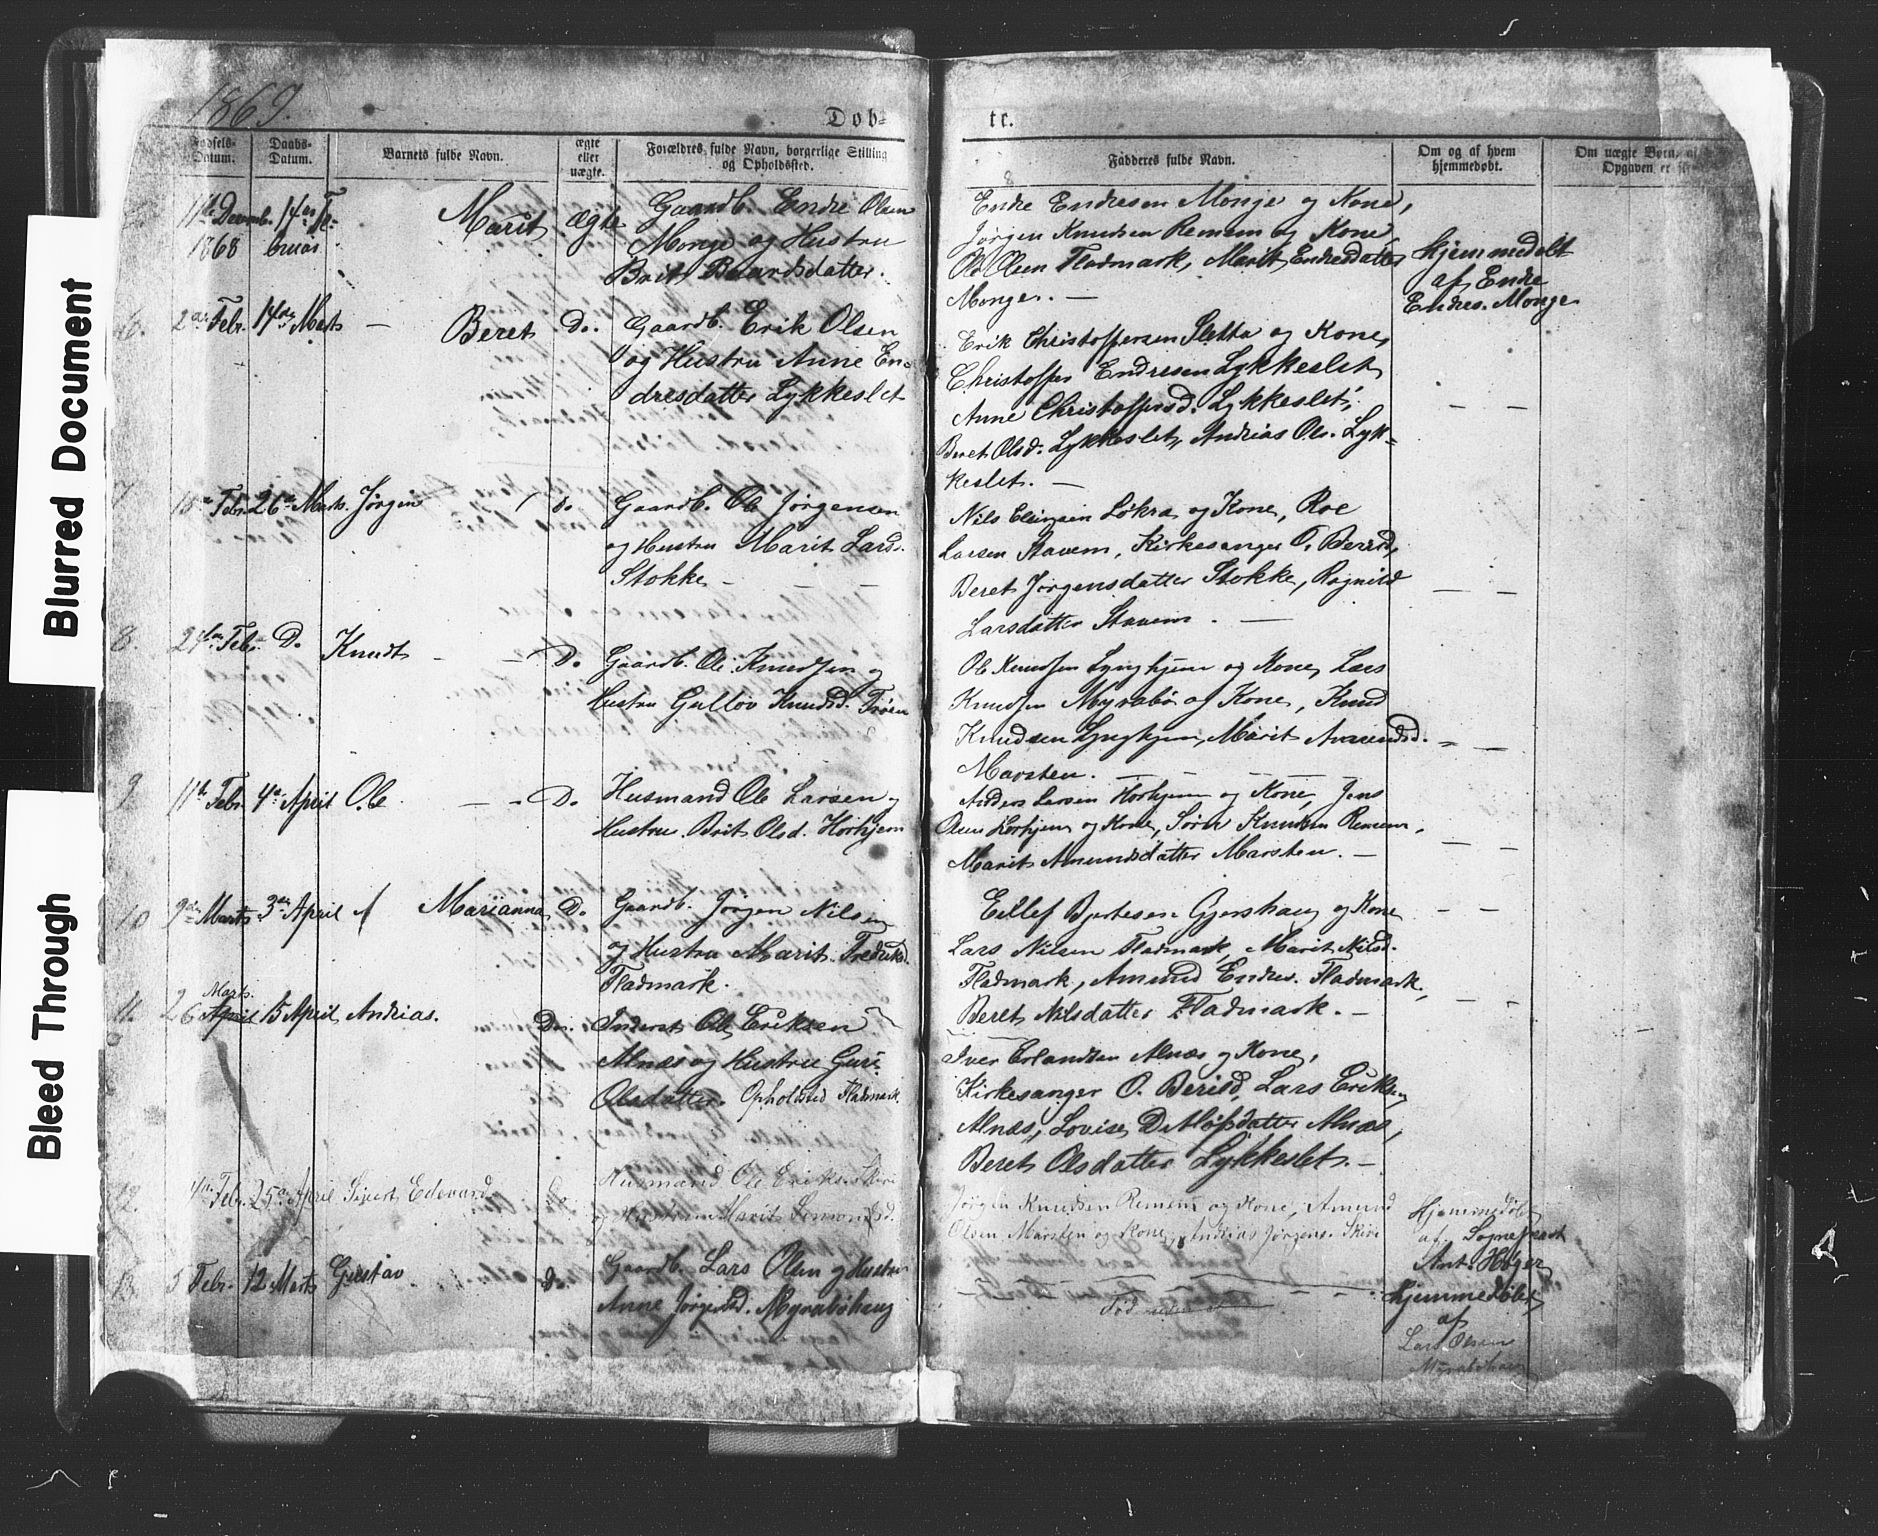 Blurred Document
Bleed Through
1869.
Døb-
te.
Fødsels-Datum.
Daabs-Datum.
Barnets fulde Navn.
ægte eller uægte.
Forældres fulde Navn, borgerlige Stilling og Opholdssted.
Fadderes fulde Navn.
Om og af hvem hjemmedøbt.
Om uægte Børn, af
Opgaven er
11te Decemb. 1868
14es Februar
Marit
ægte
Gaardb. Endre Olsen
Monge og Hustru
Brit Baardsdatter.
Endre Endresen Monge og Kone,
Jørgen Knudsen Remem og Kone,
Ole Olsen Fladmark, Marit Endresdatter
Monge. —
Hjemmedøbt
af Endre
Endres. Monge
6.
2den Febr.
14de Marts
—
Beret
Do.
Gaardb. Erik Olsen
og Hustru Anne En-
dresdatter Lykkeslet
Erik Christoffersen Sletta og Kone,
Christoffer Endresen Lykkeslet
Anne Christoffersd. Lykkeslet,
Beret Olsd. Lykkeslet, Andrias Ols. Lyk-
keslet. —
— —
7
Febr.
26de Marts.
Jørgen
Do.
Gaardb. Ole Jørgensen
og Hustru Marit Larsd.
Stokke — —
Nils Løkra og Kone, Roe
Larsen Stavem, Kirkesanger O. Berild,
Beret Jørgensdatter Stokke, Ragnild
Larsdatter Stavem. —
— —
8.
24de Febr.
D.
Knudt
- -
Do
Gaardb. Ole Knudsen og
Hustru Gullov Knudsd. Trøen
Ole Knudsen Lynghjem og Kone, Lars
Knudsen Myrabø og Kone, Knud
Knudsen Lynghjem, Marit Amundsd.
Marsten. — — — —
- —
9
11te Febr.
4de April
Ole.
— -
Do
Husmand Ole Larsen og
Hustru Brit Olsd. Horhjem
Anders Larsen Horhjem og Kone, Jens
Olsen Horhjem og Kone, Søren Knudsen Remem,
Marit Amundsdatter Marsten. —
— —
10
9de Marts
3de April
Marianna
Do
Gaardb. Jørgen Nilsen
og Hustru Marit Fredriksd.
Fladmark.
Eillef Bjortesen Gjershaug og Kone
Lars Nilsen Fladmark, Marit Nilsd.
Fladmark, Amund Endres. Fladmark,
Beret Nilsdatter Fladmark. —
— —
11.
Marts.
26 April
15 April
Andrias.
Do.
Inderst Ole Eriksen
Alnæs og Hustru Guri
Olsdatter. Opholdsted Fladmark.
Iver Erlandsen Alnæs og Kone,
Kirkesanger O. Berild, Lars Eriksen
Alnæs, Lovise Ditløfsdatter Alnæs,
Beret Olsdatter Lykkeslet. —
— —
12.
Febr.
25de April
Sivert Edevard
Do
Husmand Ole Eriksen Skiri
og Hustru Marit Simonsd.
Jørgen Knudsen Remem og Kone, Amund
Olsen Marsten og Kone, Andrias Jørgens. Skiri
Hjemmedøbt
af Sognepræst
Ant. Høyer
13.
5 Febr.
12 Marts
Gustav
Do.
Gaardb. Lars Olsen og Hustru
Anne Jørgensd. Myrabøhaug
Hjemmedøbt
af
Lars Olsen
Myrabøhaug